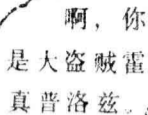 啊，你
是大盗贼霍
真普洛兹。